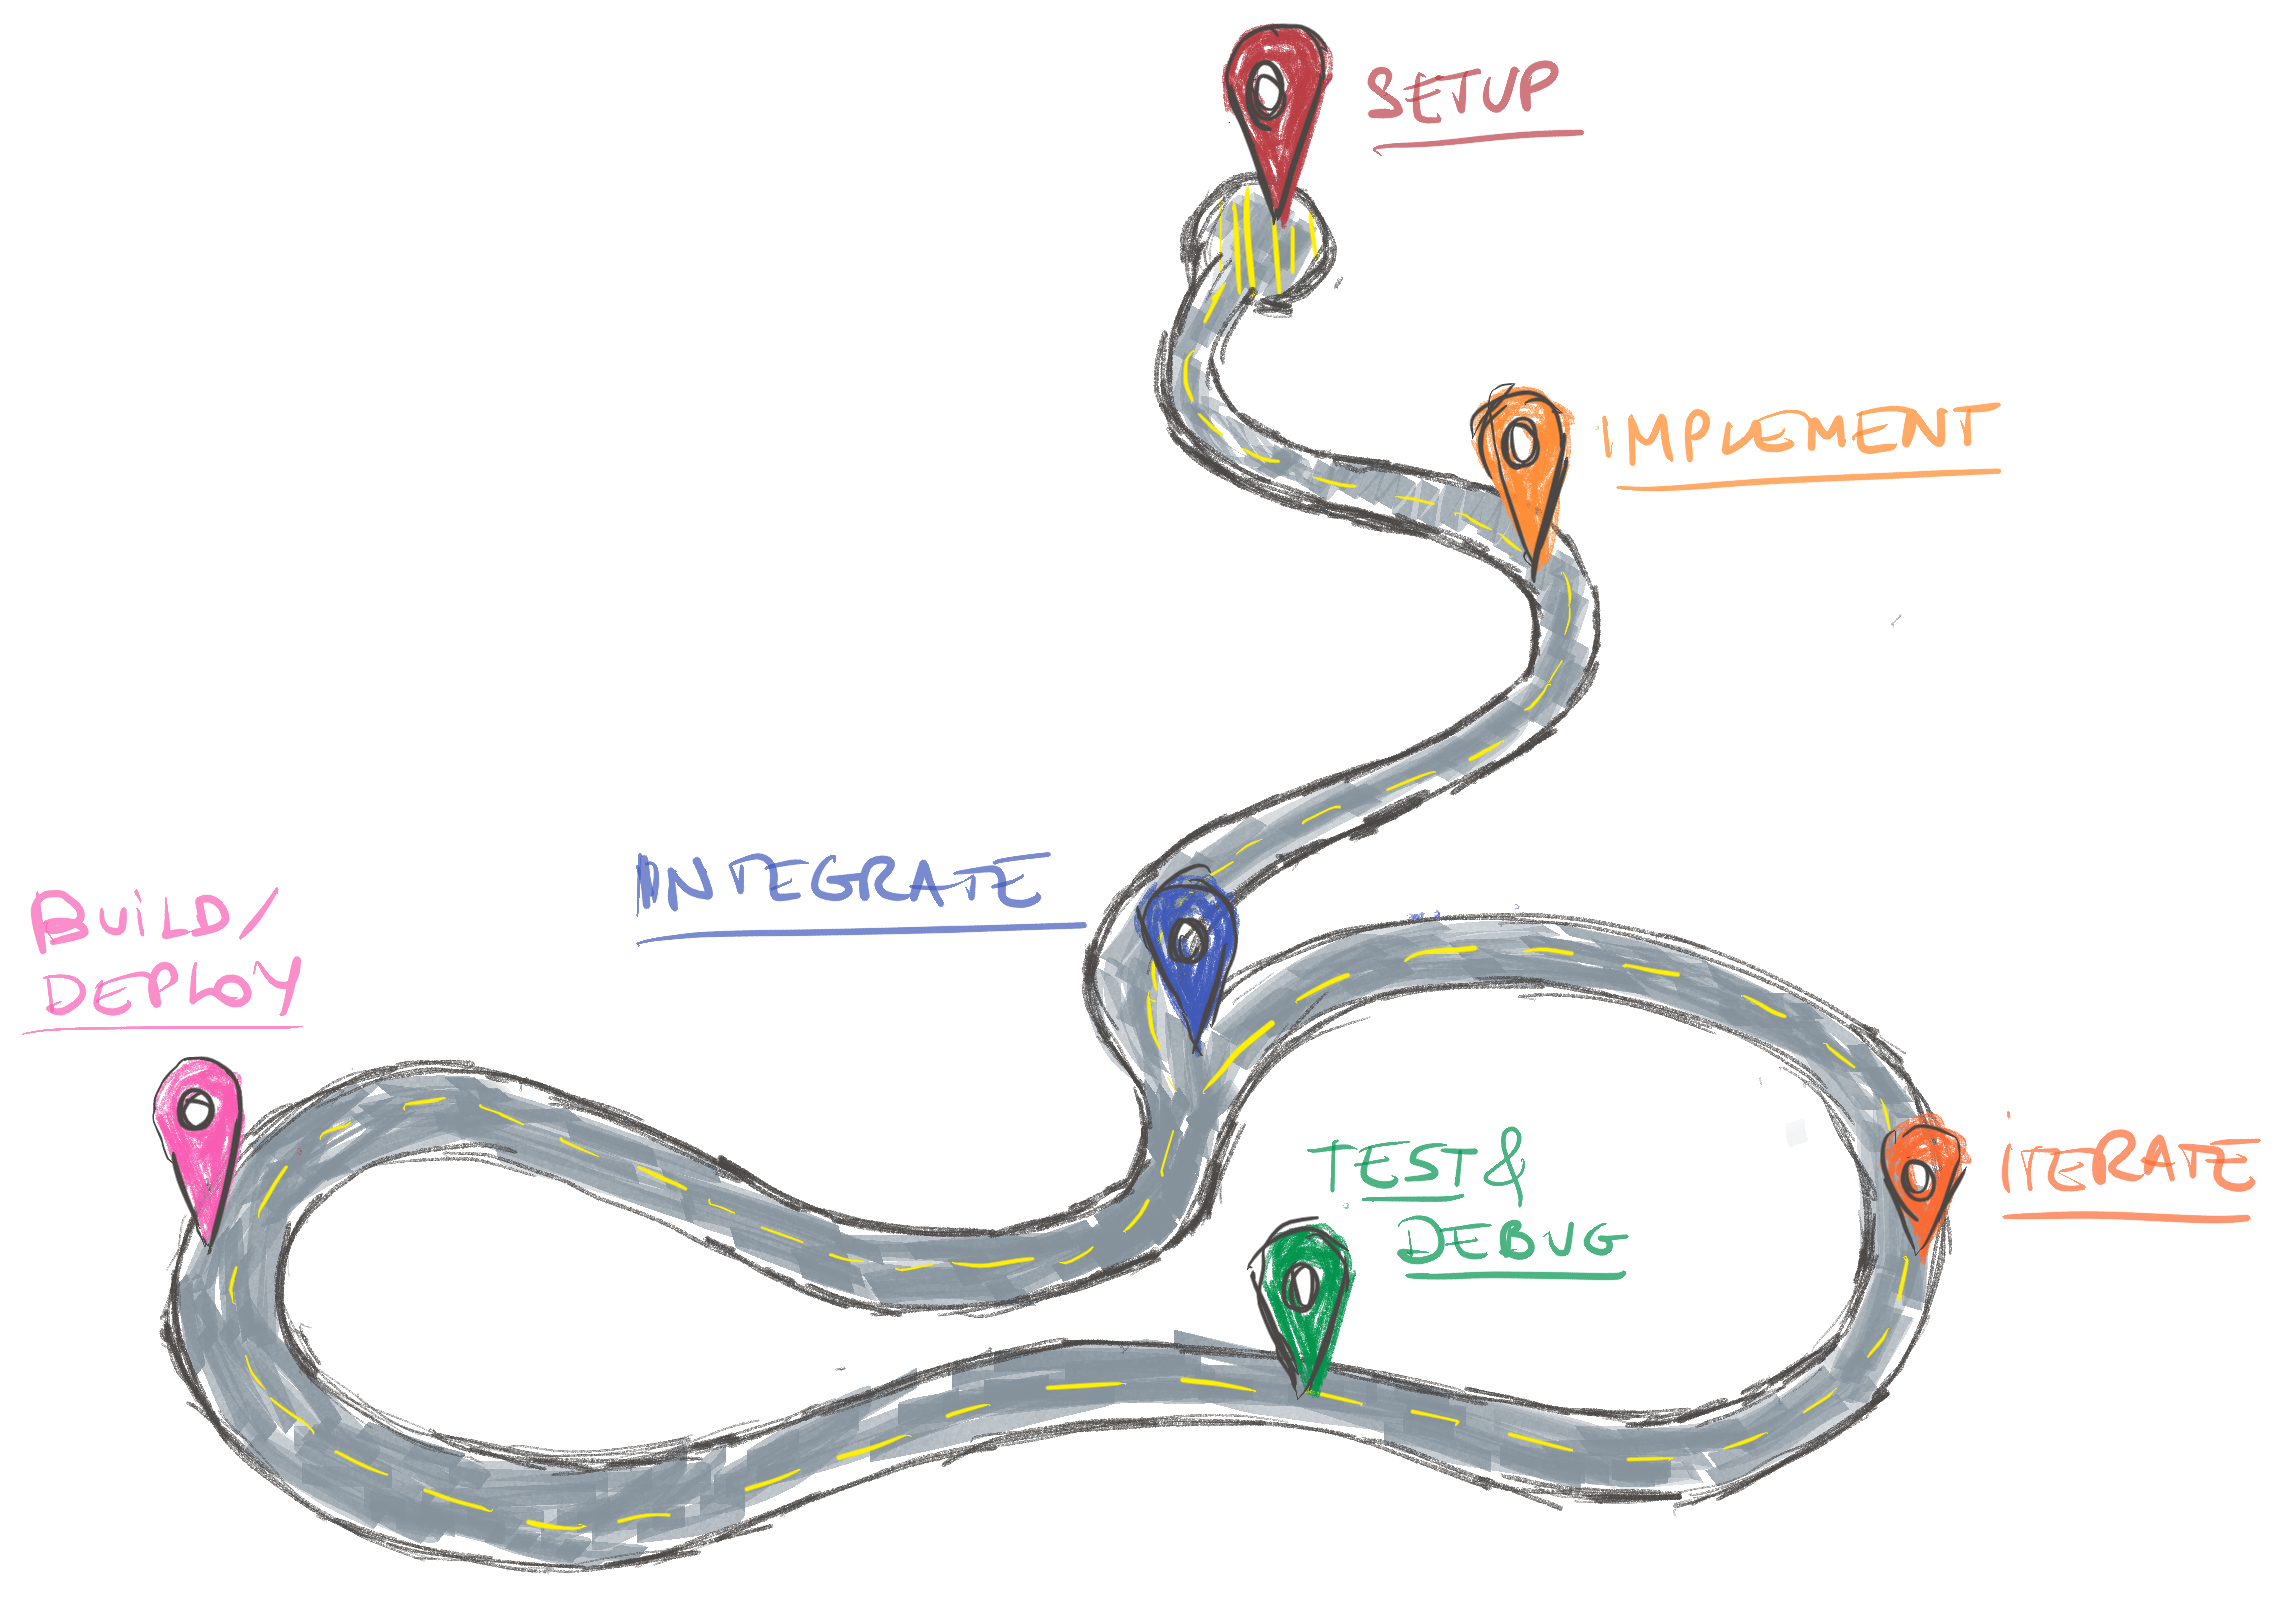 SETUP
IMPLEMENT
INTEGRATE
BUiLD/
DEPLOY
TEST &
DEBUG
iTERATE